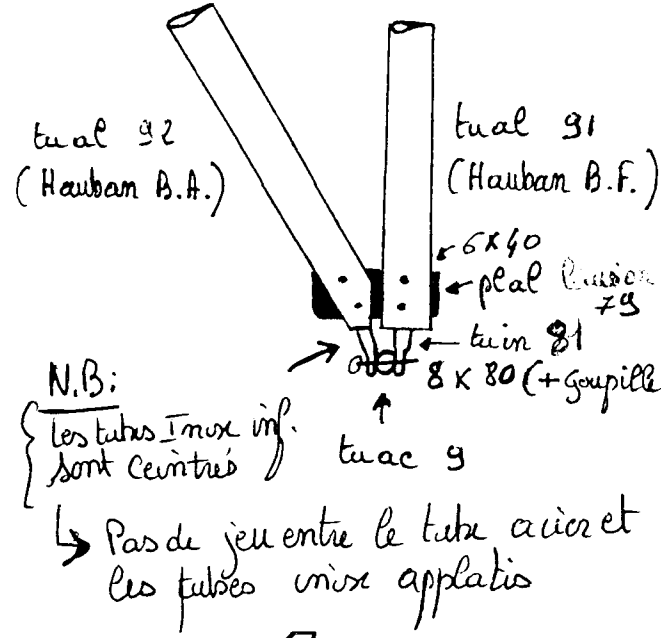 tual 92
(Hauban B.A.)
tual 91
(Hauban B.F.)
6x40
plal liaison
79
tuin 81
8 x 80 (+ goupille
tuac 9
N.B:
Les tubes Inox inf.
sont ceintrés
Pas de jeu entre le tube acier et
les tubes inox applatis